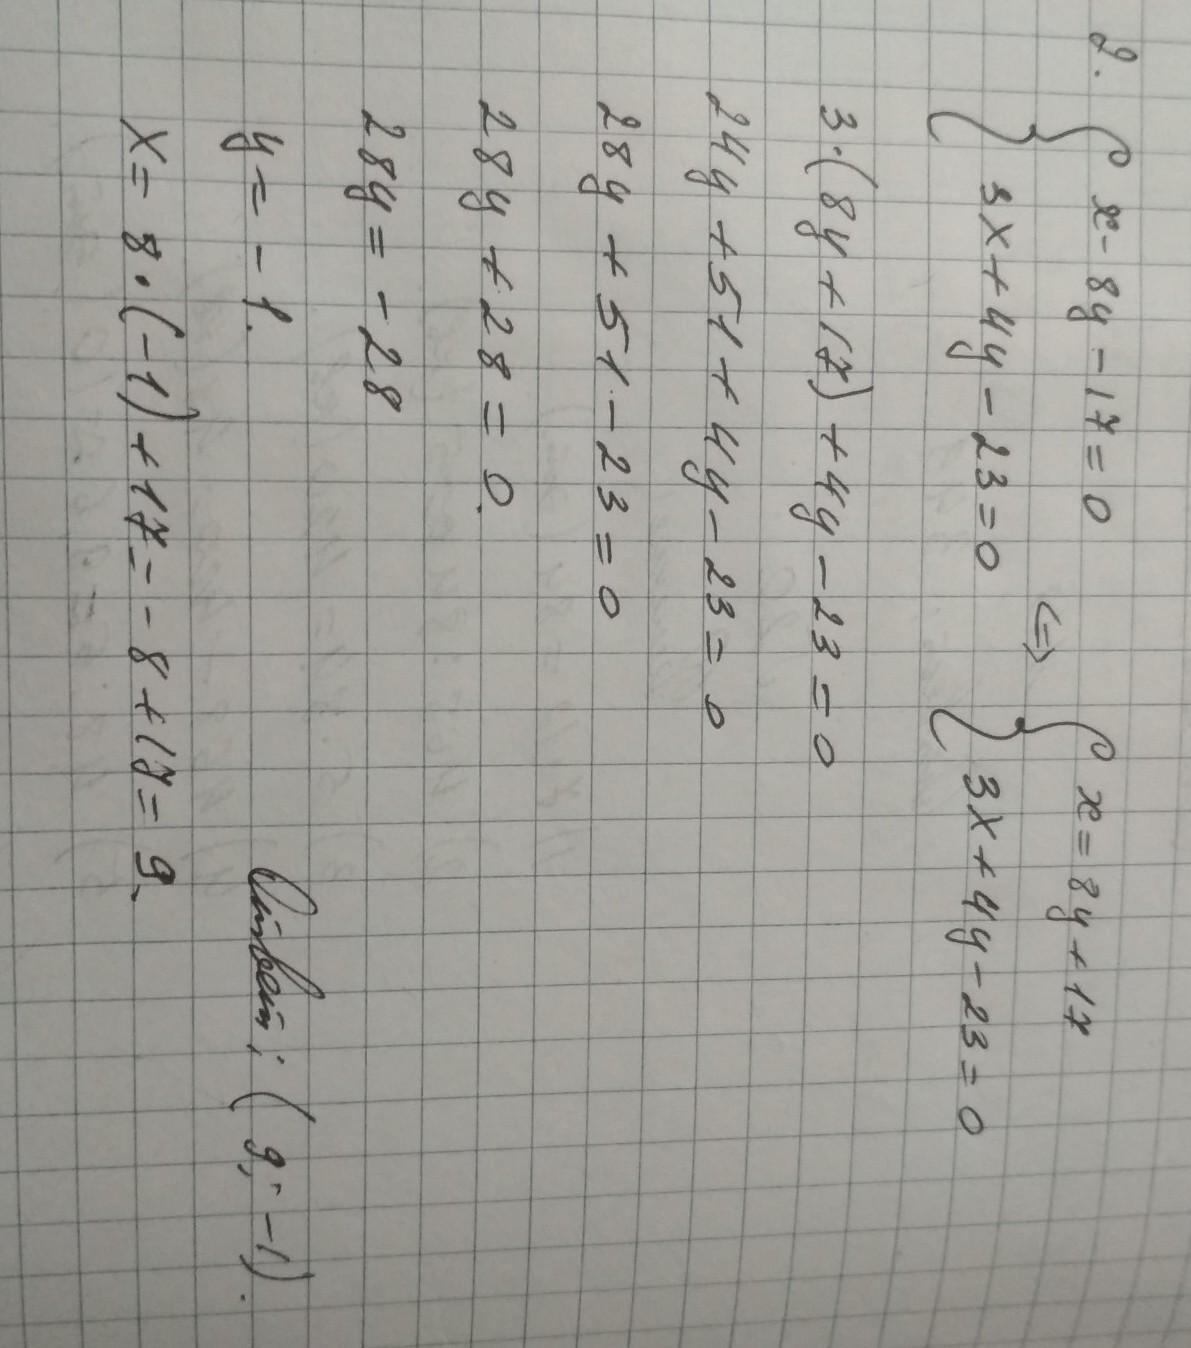 2. { x - 8y - 17 = 0
3x + 4y - 23 = 0 <=> { x = 8y + 17
3x + 4y - 23 = 0
3·(8y + 17) + 4y - 23 = 0
24y + 51 + 4y - 23 = 0
28y + 51 - 23 = 0
28y + 28 = 0.
28y = - 28
y = - 1.
x = 8·(-1) + 17 = - 8 + 17 = 9.
Ответ: (9; -1).